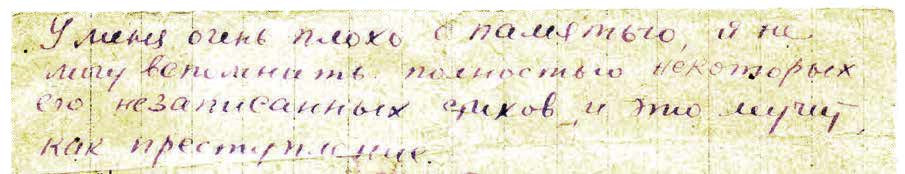 У меня очень плохо с памятью, я не
могу вспомнить полностью некоторых
его незаписанных стихов, и это мучит,
как преступление.